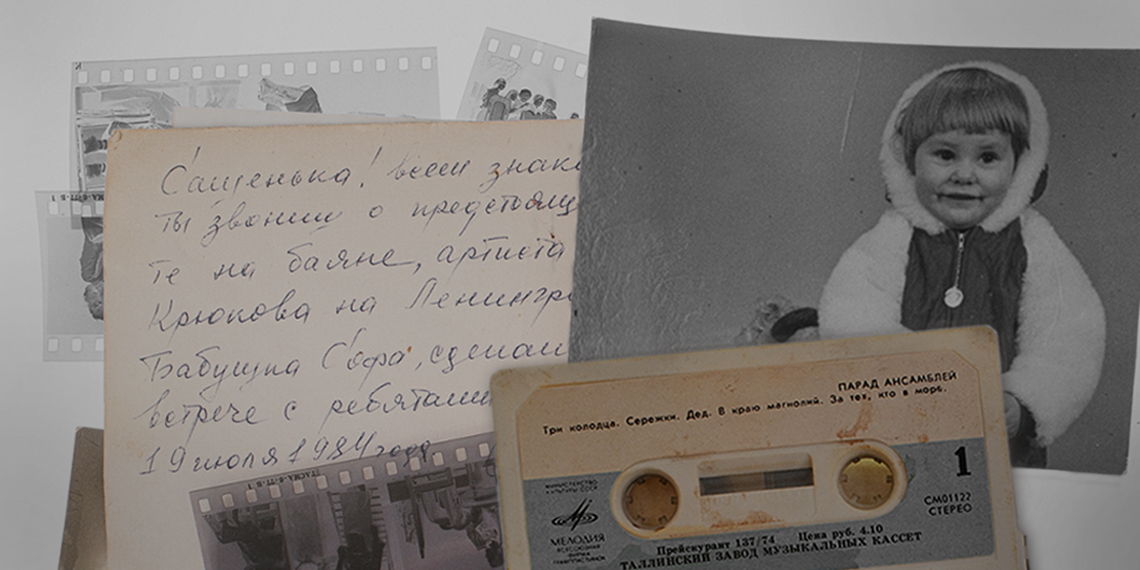 Сашенька! всем
ты звонил о
те на баяне, артиста
Крюкова на
Бабушка Софа, сделай
встрече с ребятами
19 июля 1984 года
ТАСМА-8-ТГ-В 1
ПАРАД АНСАМБЛЕЙ
Три колодца. Сережки. Дед. В краю магнолий. За тех, кто в море.
1
МИНИСТЕРСТВО
КУЛЬТУРЫ СССР
СМ01122
СТЕРЕО
МЕЛОДИЯ
ВСЕСОЮЗНАЯ
ФИРМА
ГРАМПЛАСТИНОК
Прейскурант 137/74 Цена руб. 4.10
ТАЛЛИНСКИЙ ЗАВОД МУЗЫКАЛЬНЫХ КАССЕТ